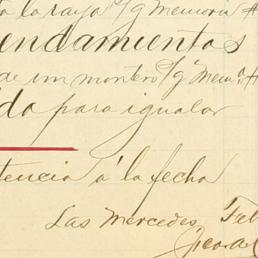 la raya s/g Memoria #
endamientos
de un montero s/g Mema. #
ido para igualar
tencia á la fecha
Las Mercedes, Feb